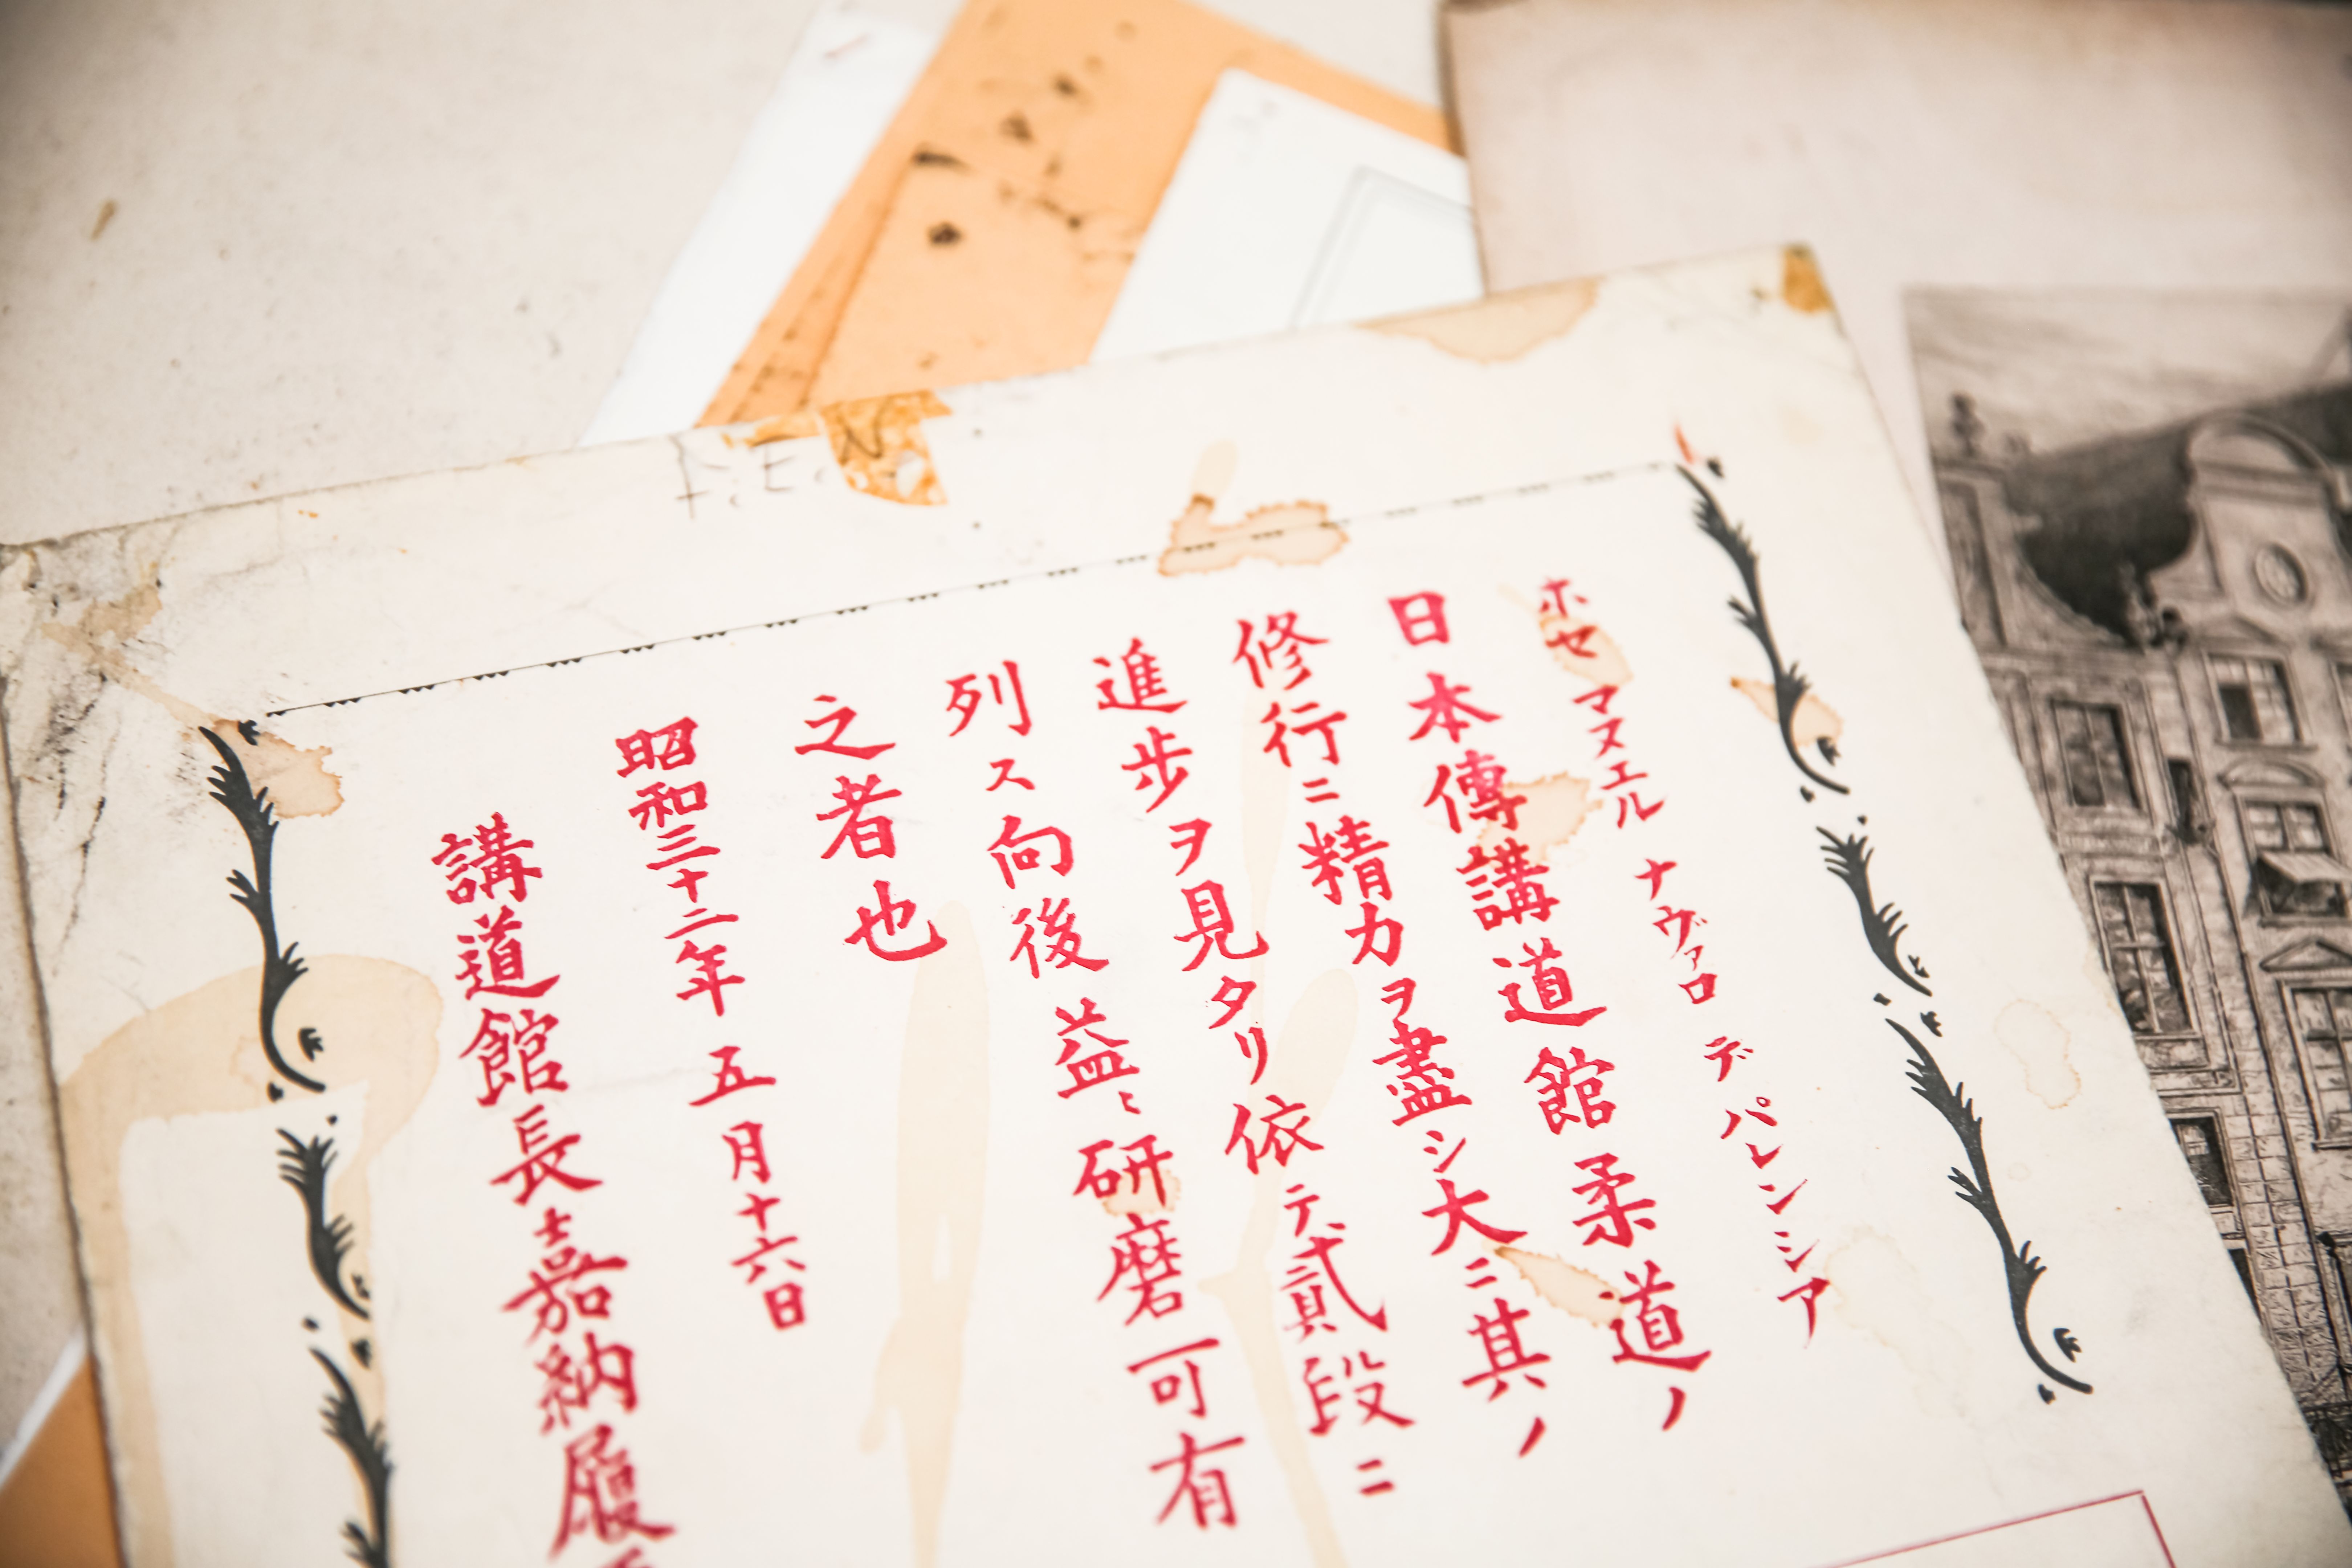 ホセ マヌエル ナヴァロ デ パレンシア
日本傳講道館柔道ノ
修行ニ精力ヲ盡シ大ニ其ノ
進歩ヲ見タリ依テ貳段ニ
列ス向後益〻研磨可有
之者也
昭和三十二年 五月十六日
講道館長嘉納履